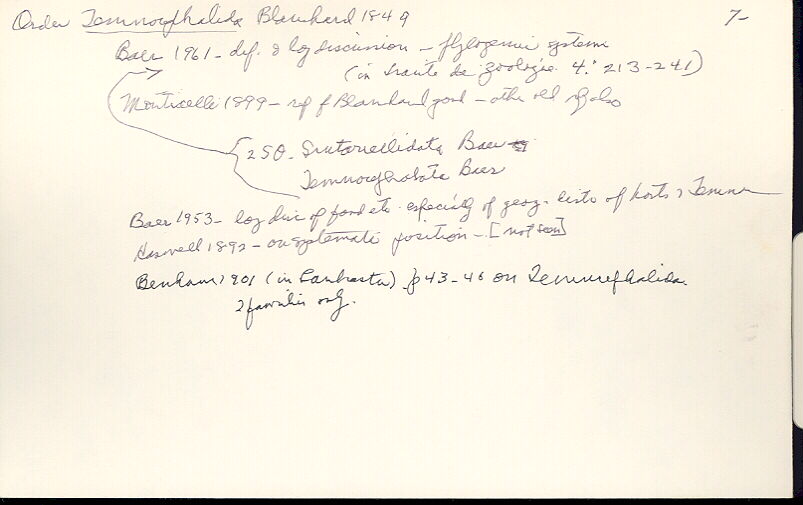 Order Temnocephalida Blanchard 1849 7-
Baer 1961 - def. & log discussion - phylogenie systeme
(in Traité de zoologie. 4: 213-241)
Monticelli 1899 - sep of Blanchard good - other old refs also
250. Scutariellidata Baer
Temnocephalata Baer
Baer 1953 - log disc of fam etc. especially of geog. lists of hosts & Temno
Haswell 1892 - on systematic position - [not seen]
Benham 1901 (in Lankester) p 43-46 on Temnocephalida
2 families only.